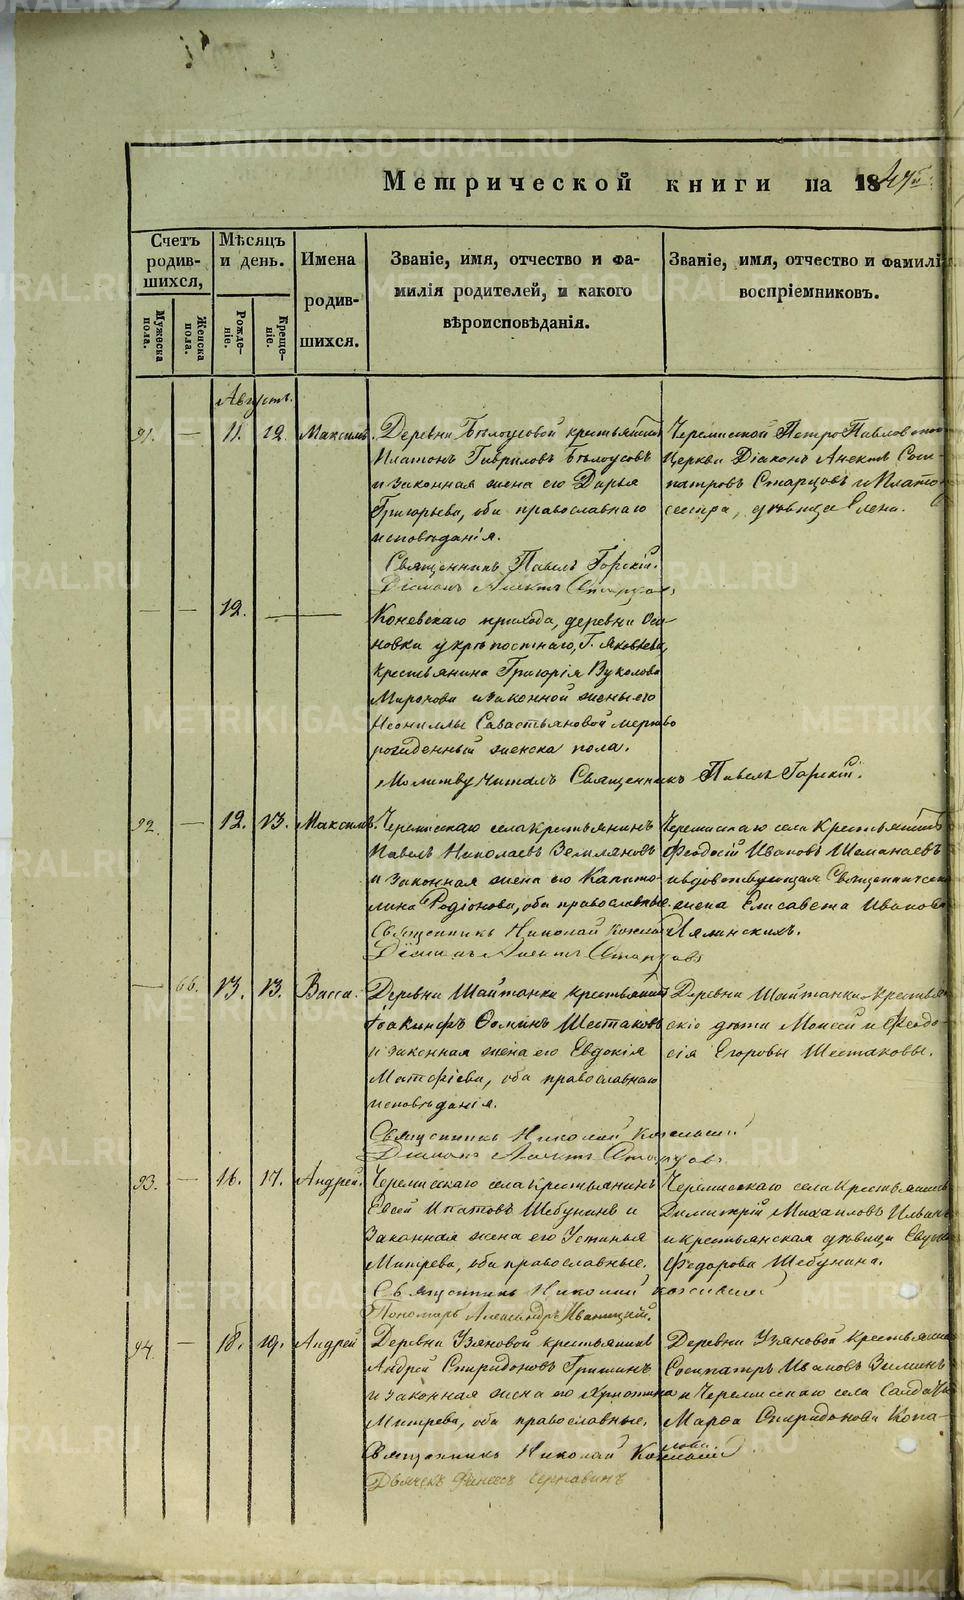 METRIKI.GASO-URAL.RU
Метрической книги на 1847й
Счетъ родив-шихся,
Мѣсяцъ и день.
Имена родив-шихся.
Званіе, имя, отчество и фа-
милія родителей, и какого
вѣроисповѣданія.
Званіе, имя, отчество и фамилі
воспріемниковъ.
Мужеска пола.
Женска пола.
Рожде-ніе.
Креще-ніе.
Августъ.
91. — 11. 12. Максимъ.
Деревни Бѣлоусовой крестьянинъ
Платонъ Гавриловъ Бѣлоусовъ
и законная жена его Дарья
Григорьева, оба православнаго
исповѣданія.
Черемисской Петро-Павловской
Церкви Діаконъ Алексѣй Соси-
патровъ Старцовъ и Плато
сестра, дѣвица Елена.
Священникъ Павелъ Горскій.
Діаконъ Алексѣй Старцовъ
— — 12. — —
Коневскаго прихода, деревни Оси-
новки у крѣпостнаго, Г. Яковлева,
крестьянина Григорія Вуколова
Миронова и законной жены его
Неониллы Савастьяновой мертво
рожденный женска пола.
Молитву читалъ Священникъ Павелъ Горскій.
92. — 12. 13. Максимъ.
Черемисскаго села крестьянинъ
Павелъ Николаевъ Земляновъ
и законная жена его Капито-
лина Родіонова, оба православные.
Черемисскаго села крестьянинъ
Феодосій Ивановъ Шеманаевъ
и вдовствующая Священническая
жена Елисавета Иванова
Лялинскихъ.
Священникъ Николай
Діаконъ Алексѣй Старцовъ
— 66. 13. 13. Васса.
Деревни Шайтанки крестьянинъ
Іоакинфъ Ѳоминъ Шестаковъ
и законная жена его Евдокія
Матфіева, оба православнаго
исповѣданія.
Деревни Шайтанки крестьян
скіе дѣти Моисей и Феодо-
сія Егоровы Шестаковы.
Священникъ Николай
Діаконъ Алексѣй Старцовъ
93. — 16. 17. Андрей.
Черемисскаго села крестьянинъ
Евсей Ипатовъ Шебунинъ и
законная жена его Устинья
Митрева, оба православные.
Черемисскаго села крестьянинъ
Димитрій Михаиловъ Ильинъ
и крестьянская дѣвица
Федорова Шебунина.
Священникъ Николай
Пономарь Александръ Иваницкій.
94. — 18. 19. Андрей
Деревни Узяновой крестьянинъ
Андрей Спиридоновъ Гришинъ
и законная жена его Христина
Митрева, оба православные.
Деревни Узяновой крестьянинъ
Сосипатръ Ивановъ Зиминъ
и Черемисскаго села Салда
Марѳа Спиридонова Копа-
лова.
Священникъ Николай
Дьячекъ